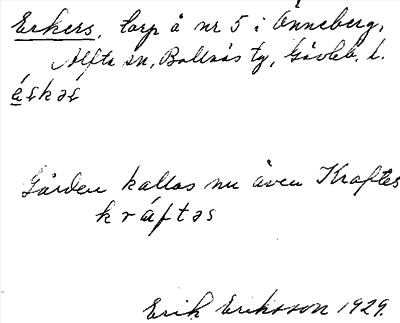 Erkers, torp å nr 5 i Änneberg,
Alfta sn, Bollnäs tg, Gävleb. l.
áskəs
Gården kallas nu även Kraftes
kráftəs
Erik Eriksson 1929.